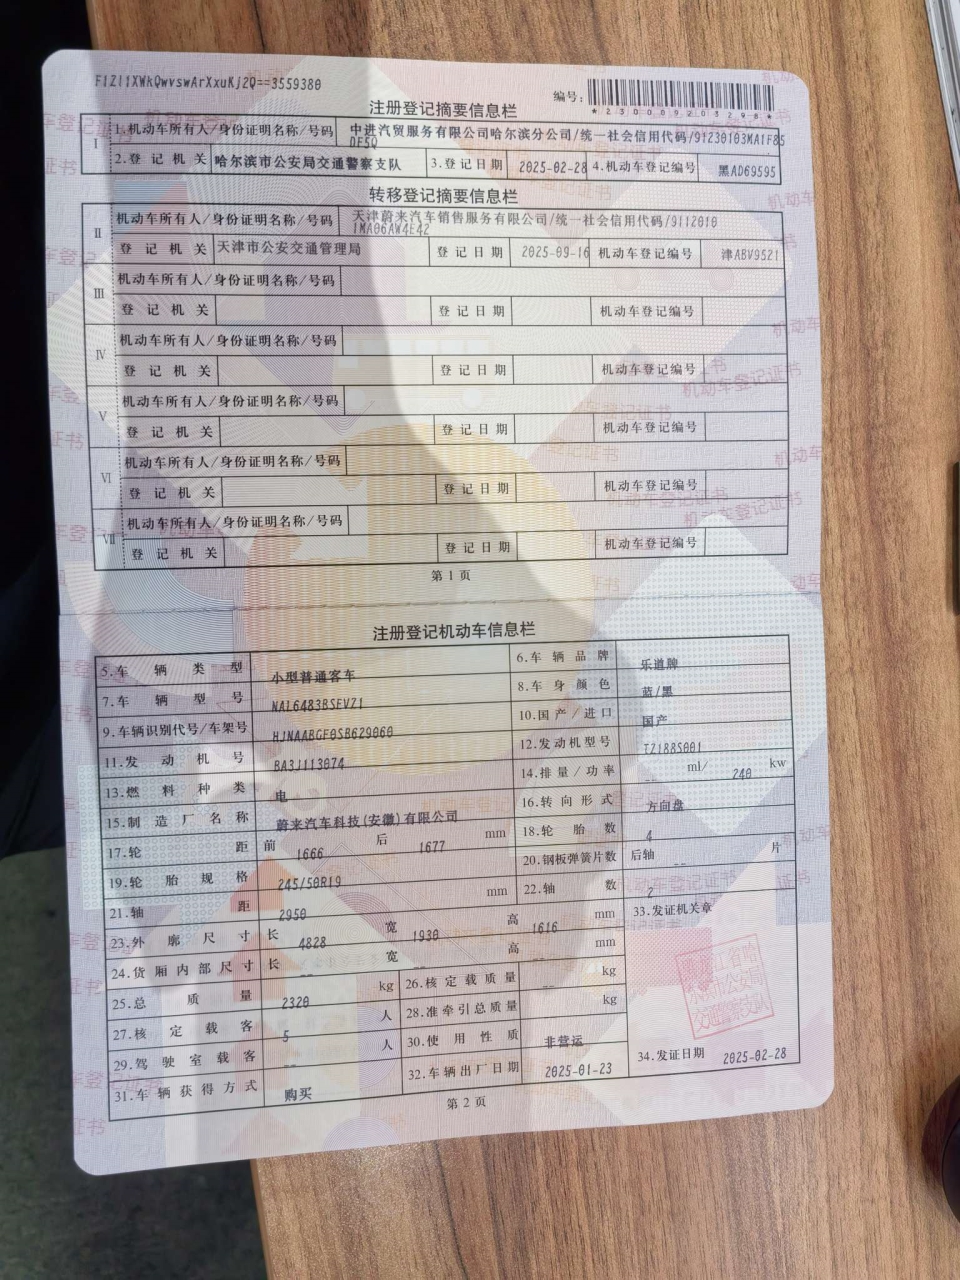 F1Z11XWkQwvswArXxuKj2Q==3559380
编号：
*230009203298*
注册登记摘要信息栏
Ⅰ 1.机动车所有人/身份证明名称/号码 中进汽贸服务有限公司哈尔滨分公司/统一社会信用代码/91230103MA1F85
DF5Q
2.登记机关 哈尔滨市公安局交通警察支队 3.登记日期 2025-02-28 4.机动车登记编号 黑AD69595
转移登记摘要信息栏
Ⅱ 机动车所有人/身份证明名称/号码 天津蔚来汽车销售服务有限公司/统一社会信用代码/9112010
1MA06AW4E42
登记机关 天津市公安交通管理局 登记日期 2025-09-16 机动车登记编号 津ABV9521
Ⅲ 机动车所有人/身份证明名称/号码
登记机关 登记日期 机动车登记编号
Ⅳ 机动车所有人/身份证明名称/号码
登记机关 登记日期 机动车登记编号
Ⅴ 机动车所有人/身份证明名称/号码
登记机关 登记日期 机动车登记编号
Ⅵ 机动车所有人/身份证明名称/号码
登记机关 登记日期 机动车登记编号
Ⅶ 机动车所有人/身份证明名称/号码
登记机关 登记日期 机动车登记编号
第1页
注册登记机动车信息栏
5.车辆类型 小型普通客车 6.车辆品牌 乐道牌
7.车辆型号 NAL6483BSEVZ1 8.车身颜色 蓝/黑
9.车辆识别代号/车架号 HJNAABGF0SB629060 10.国产/进口 国产
11.发动机号 BA3J113074 12.发动机型号 TZ188S001
13.燃料种类 电 14.排量/功率 -- ml/ 240 kw
15.制造厂名称 蔚来汽车科技(安徽)有限公司 16.转向形式 方向盘
17.轮距 前 1666 后 1677 mm 18.轮胎数 4
19.轮胎规格 245/50R19 20.钢板弹簧片数 后轴 -- 片
21.轴距 2950 mm 22.轴数 2
23.外廓尺寸 长 4828 宽 1930 高 1616 mm 33.发证机关章
24.货厢内部尺寸 长 -- 宽 -- 高 -- mm
25.总质量 2320 kg 26.核定载质量 -- kg
27.核定载客 5 人 28.准牵引总质量 kg
29.驾驶室载客 -- 人 30.使用性质 非营运
31.车辆获得方式 购买 32.车辆出厂日期 2025-01-23 34.发证日期 2025-02-28
第2页